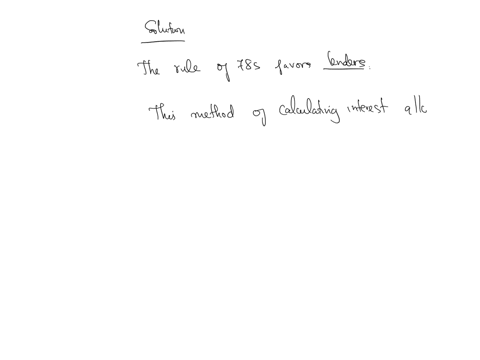 Solution
The rule of 78s favors lenders.
This method of calculating interest allo